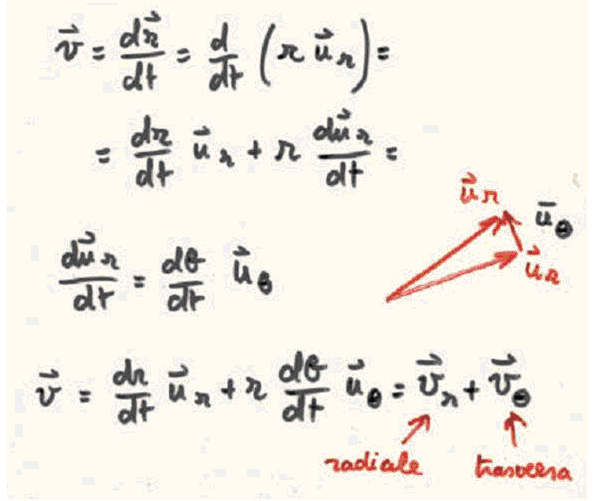 v⃗ = dr⃗/dt = d/dt (r u⃗r) =
= dr/dt u⃗r + r du⃗r/dt =
u⃗r u̅θ
du⃗r/dt = dθ/dt u⃗θ
u⃗r
v⃗ = dr/dt u⃗r + r dθ/dt u⃗θ = v⃗r + v⃗θ
radiale trasversa